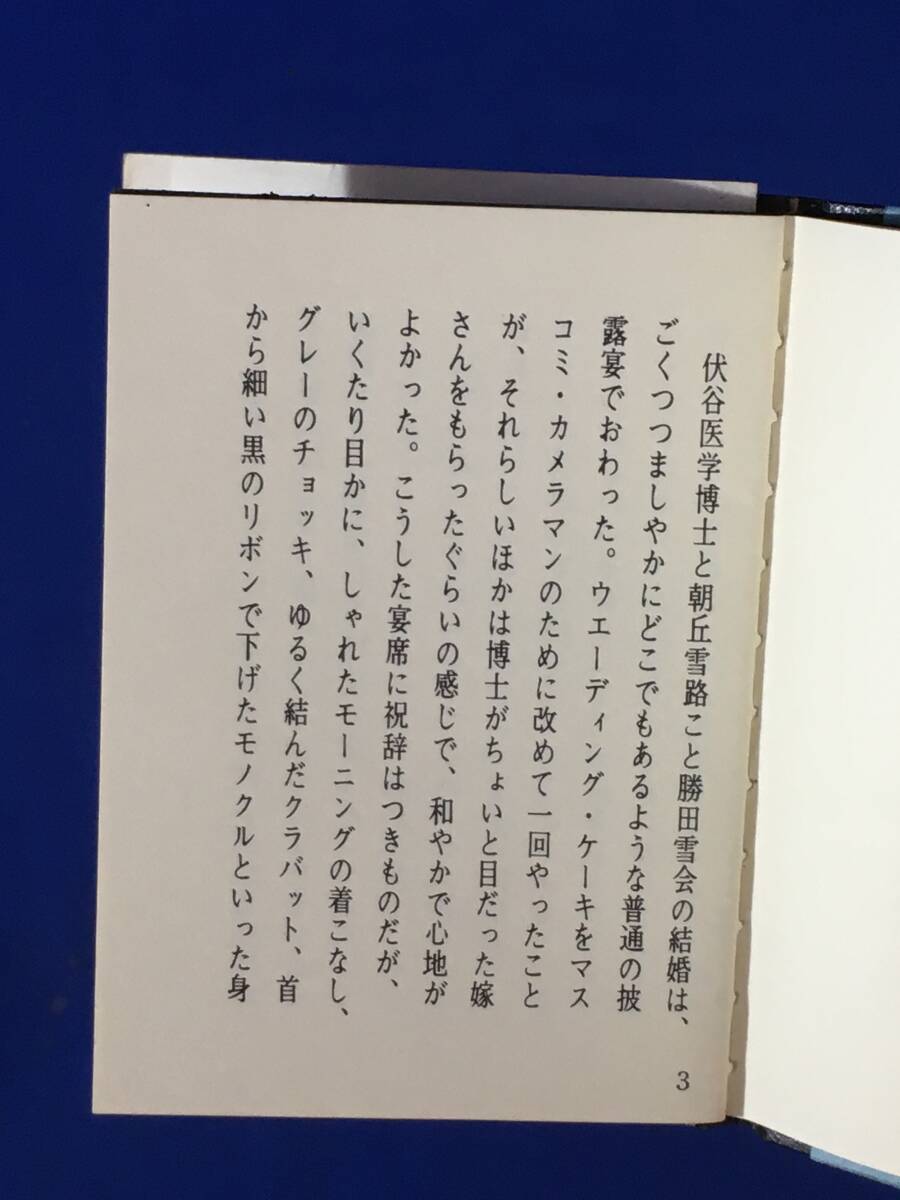 伏谷医学博士と朝丘雪路こと勝田雪会の結婚は、
ごくつつましやかにどこでもあるような普通の披
露宴でおわった。ウエーディング・ケーキをマス
コミ・カメラマンのために改めて一回やったこと
が、それらしいほかは博士がちょいと目だった嫁
さんをもらったぐらいの感じで、和やかで心地が
よかった。こうした宴席に祝辞はつきものだが、
いくたり目かに、しゃれたモーニングの着こなし、
グレーのチョッキ、ゆるく結んだクラバット、首
から細い黒のリボンで下げたモノクルといった身
3